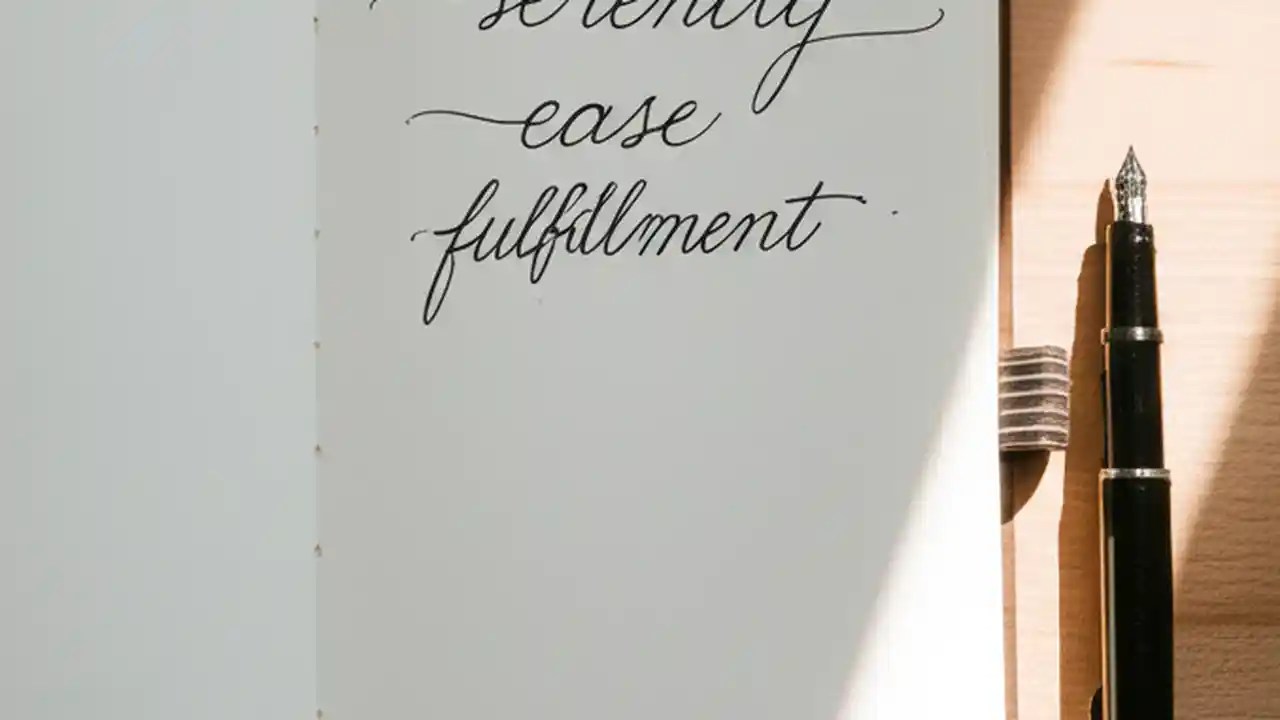 serenity
ease
fulfillment